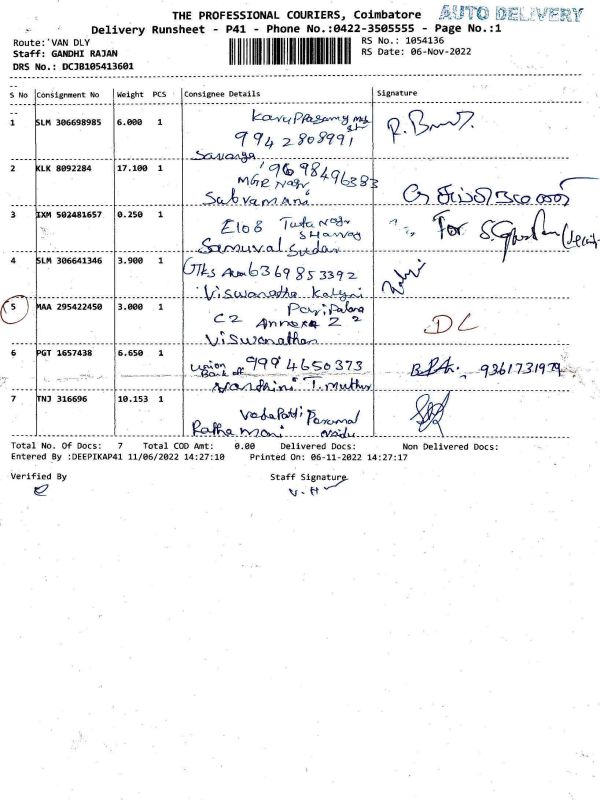 THE PROFESSIONAL COURIERS, Coimbatore AUTO DELIVERY
Delivery Runsheet - P41 - Phone No.:0422-3505555 - Page No.:1
Route: VAN DLY RS No.: 1054136
Staff: GANDHI RAJAN RS Date: 06-Nov-2022
DRS No.: DCJB105413601
S No Consignment No Weight PCS Consignee Details Signature
1 SLM 306698985 6.000 1
9942808991
2 KLK 8092284 17.100 1 9698496383
MGR Nagr
Subramani
3 IXM 502481657 0.250 1 E108
For
4 SLM 306641346 3.900 1 6369853392
Viswanatha
5 MAA 295422450 3.000 1
C2 Annexe 2 2 DL
Viswanathan
6 PGT 1657438 6.650 1 Union Bank of 9994650373 9361731979
T. Muthu
7 TNJ 316696 10.153 1 Vadapatti Perumal
Ratha Mani
Total No. Of Docs: 7 Total COD Amt: 0.00 Delivered Docs: Non Delivered Docs:
Entered By :DEEPIKAP41 11/06/2022 14:27:10 Printed On: 06-11-2022 14:27:17
Verified By Staff Signature